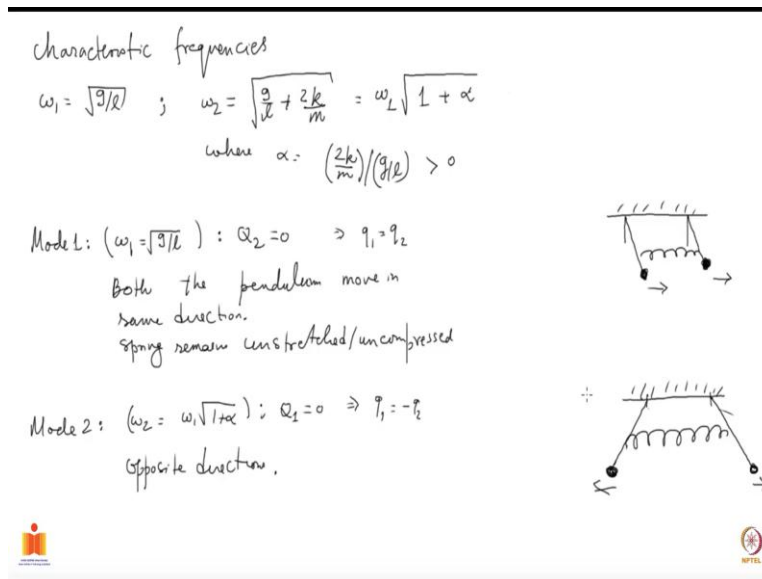 characteristic frequencies
ω₁ = √g/l ; ω₂ = √(g/l + 2k/m) = ω₁ √(1 + α)
where α = (2k/m)/(g/l) > 0
Mode 1: (ω₁ = √g/l) : Q₂ = 0 ⇒ q₁ = q₂
Both the pendulum move in
same direction.
spring remain unstretched/uncompressed
Mode 2: (ω₂ = ω₁√1+α) ; Q₁ = 0 ⇒ q₁ = -q₂
opposite direction.
NPTEL